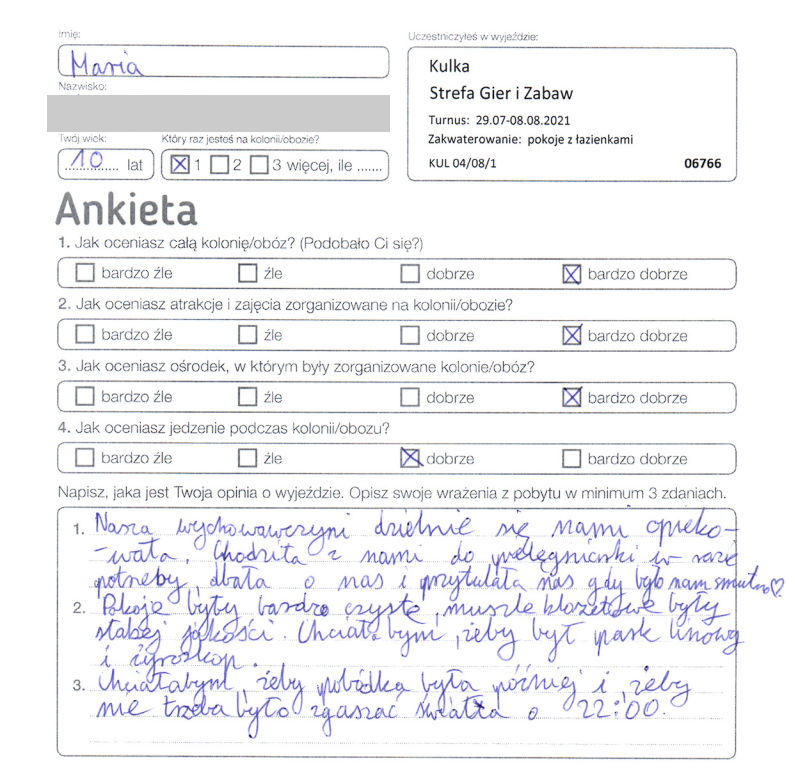 Imię:
Uczestniczyłeś w wyjeździe:
Maria
Kulka
Nazwisko:
Strefa Gier i Zabaw
Turnus: 29.07-08.08.2021
Twój wiek:
Który raz jesteś na kolonii/obozie?
Zakwaterowanie: pokoje z łazienkami
10 lat
1 2 3 więcej, ile .......
KUL 04/08/1 06766
Ankieta
1. Jak oceniasz całą kolonię/obóz? (Podobało Ci się?)
bardzo źle źle dobrze bardzo dobrze
2. Jak oceniasz atrakcje i zajęcia zorganizowane na kolonii/obozie?
bardzo źle źle dobrze bardzo dobrze
3. Jak oceniasz ośrodek, w którym były zorganizowane kolonie/obóz?
bardzo źle źle dobrze bardzo dobrze
4. Jak oceniasz jedzenie podczas kolonii/obozu?
bardzo źle źle dobrze bardzo dobrze
Napisz, jaka jest Twoja opinia o wyjeździe. Opisz swoje wrażenia z pobytu w minimum 3 zdaniach.
1. Nasza wychowawczyni dzielnie się nami opieko-
-wała. Chodziła z nami do pielęgniarki w razie
potrzeby, dbała o nas i przytulała nas gdy było nam smutno♡
2. Pokoje były bardzo czyste, muszle klozetowe były
słabej jakości. Chciałabym, żeby był park linowy
i żyroskop.
3. Chciałabym, żeby pobódka była później i, żeby
nie trzeba było zgaszać światła o 22:00.